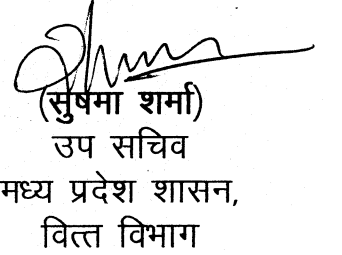 (सुषमा शर्मा)
उप सचिव
मध्य प्रदेश शासन,
वित्त विभाग